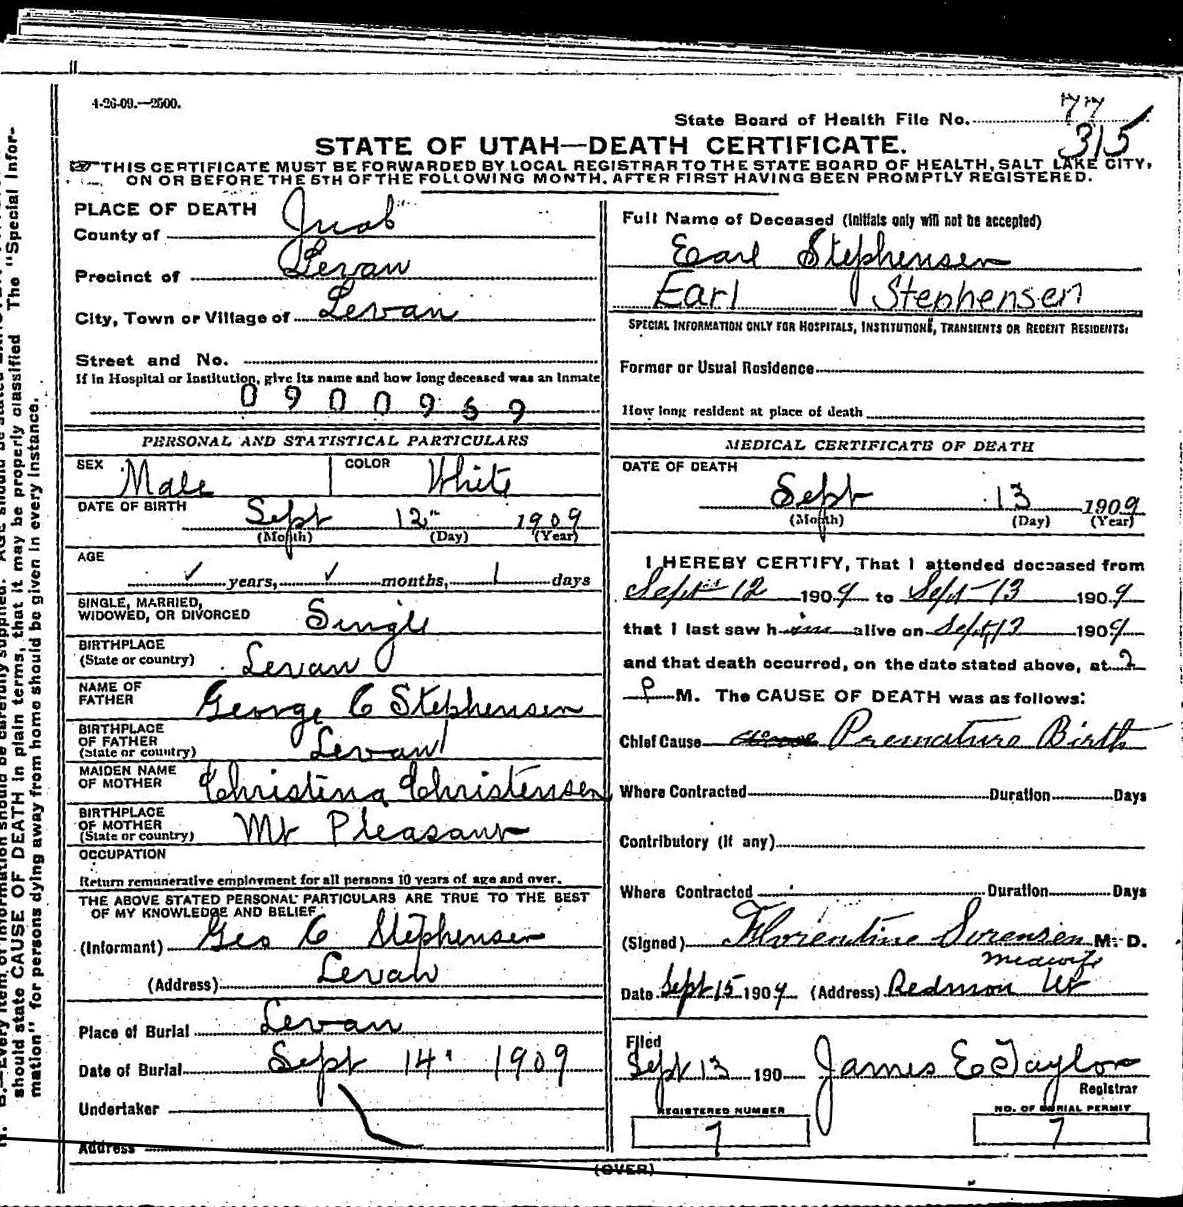 4-26-09.—2500.
State Board of Health File No. 77
315
STATE OF UTAH—DEATH CERTIFICATE.
THIS CERTIFICATE MUST BE FORWARDED BY LOCAL REGISTRAR TO THE STATE BOARD OF HEALTH, SALT LAKE CITY,
ON OR BEFORE THE 5TH OF THE FOLLOWING MONTH, AFTER FIRST HAVING BEEN PROMPTLY REGISTERED.
PLACE OF DEATH
County of Juab
Precinct of Levan
City, Town or Village of Levan
Street and No.
If in Hospital or Institution, give its name and how long deceased was an inmate
0 9 0 0 9 6 9
PERSONAL AND STATISTICAL PARTICULARS
SEX Male COLOR White
DATE OF BIRTH
Sept 12" 1909
(Month) (Day) (Year)
AGE
✓ years, ✓ months, 1 days
SINGLE, MARRIED,
WIDOWED, OR DIVORCED Single
BIRTHPLACE
(State or country) Levan
NAME OF
FATHER George C Stephensen
BIRTHPLACE
OF FATHER
(State or country) Levan
MAIDEN NAME
OF MOTHER Christina Christensen
BIRTHPLACE
OF MOTHER
(State or country) Mt Pleasant
OCCUPATION
Return remunerative employment for all persons 10 years of age and over.
THE ABOVE STATED PERSONAL PARTICULARS ARE TRUE TO THE BEST
OF MY KNOWLEDGE AND BELIEF
(Informant) Geo C Stephensen
(Address) Levan
Place of Burial Levan
Date of Burial Sept 14 1909
Undertaker
Address
Full Name of Deceased (Initials only will not be accepted)
Earl Stephensen
Earl Stephensen
SPECIAL INFORMATION ONLY FOR HOSPITALS, INSTITUTIONS, TRANSIENTS OR RECENT RESIDENTS:
Former or Usual Residence
How long resident at place of death
MEDICAL CERTIFICATE OF DEATH
DATE OF DEATH
Sept 13 1909
(Month) (Day) (Year)
I HEREBY CERTIFY, That I attended deceased from
Sept 12 1909 to Sept 13 1909
that I last saw him alive on Sept 13 1909
and that death occurred, on the date stated above, at 2
P M. The CAUSE OF DEATH was as follows:
Chief Cause Premature Birth
Where Contracted Duration Days
Contributory (if any)
Where Contracted Duration Days
(Signed) Florentine Sorensen M. D.
midwife
Date Sept 15 1909 (Address) Redmon Ut
Filed
Sept 13 190 James E Taylor
Registrar
REGISTERED NUMBER NO. OF BURIAL PERMIT
7 7
(OVER)
should state CAUSE OF DEATH in plain terms, that it may be properly classified The "Special Infor-
mation" for persons dying away from home should be given in every instance.